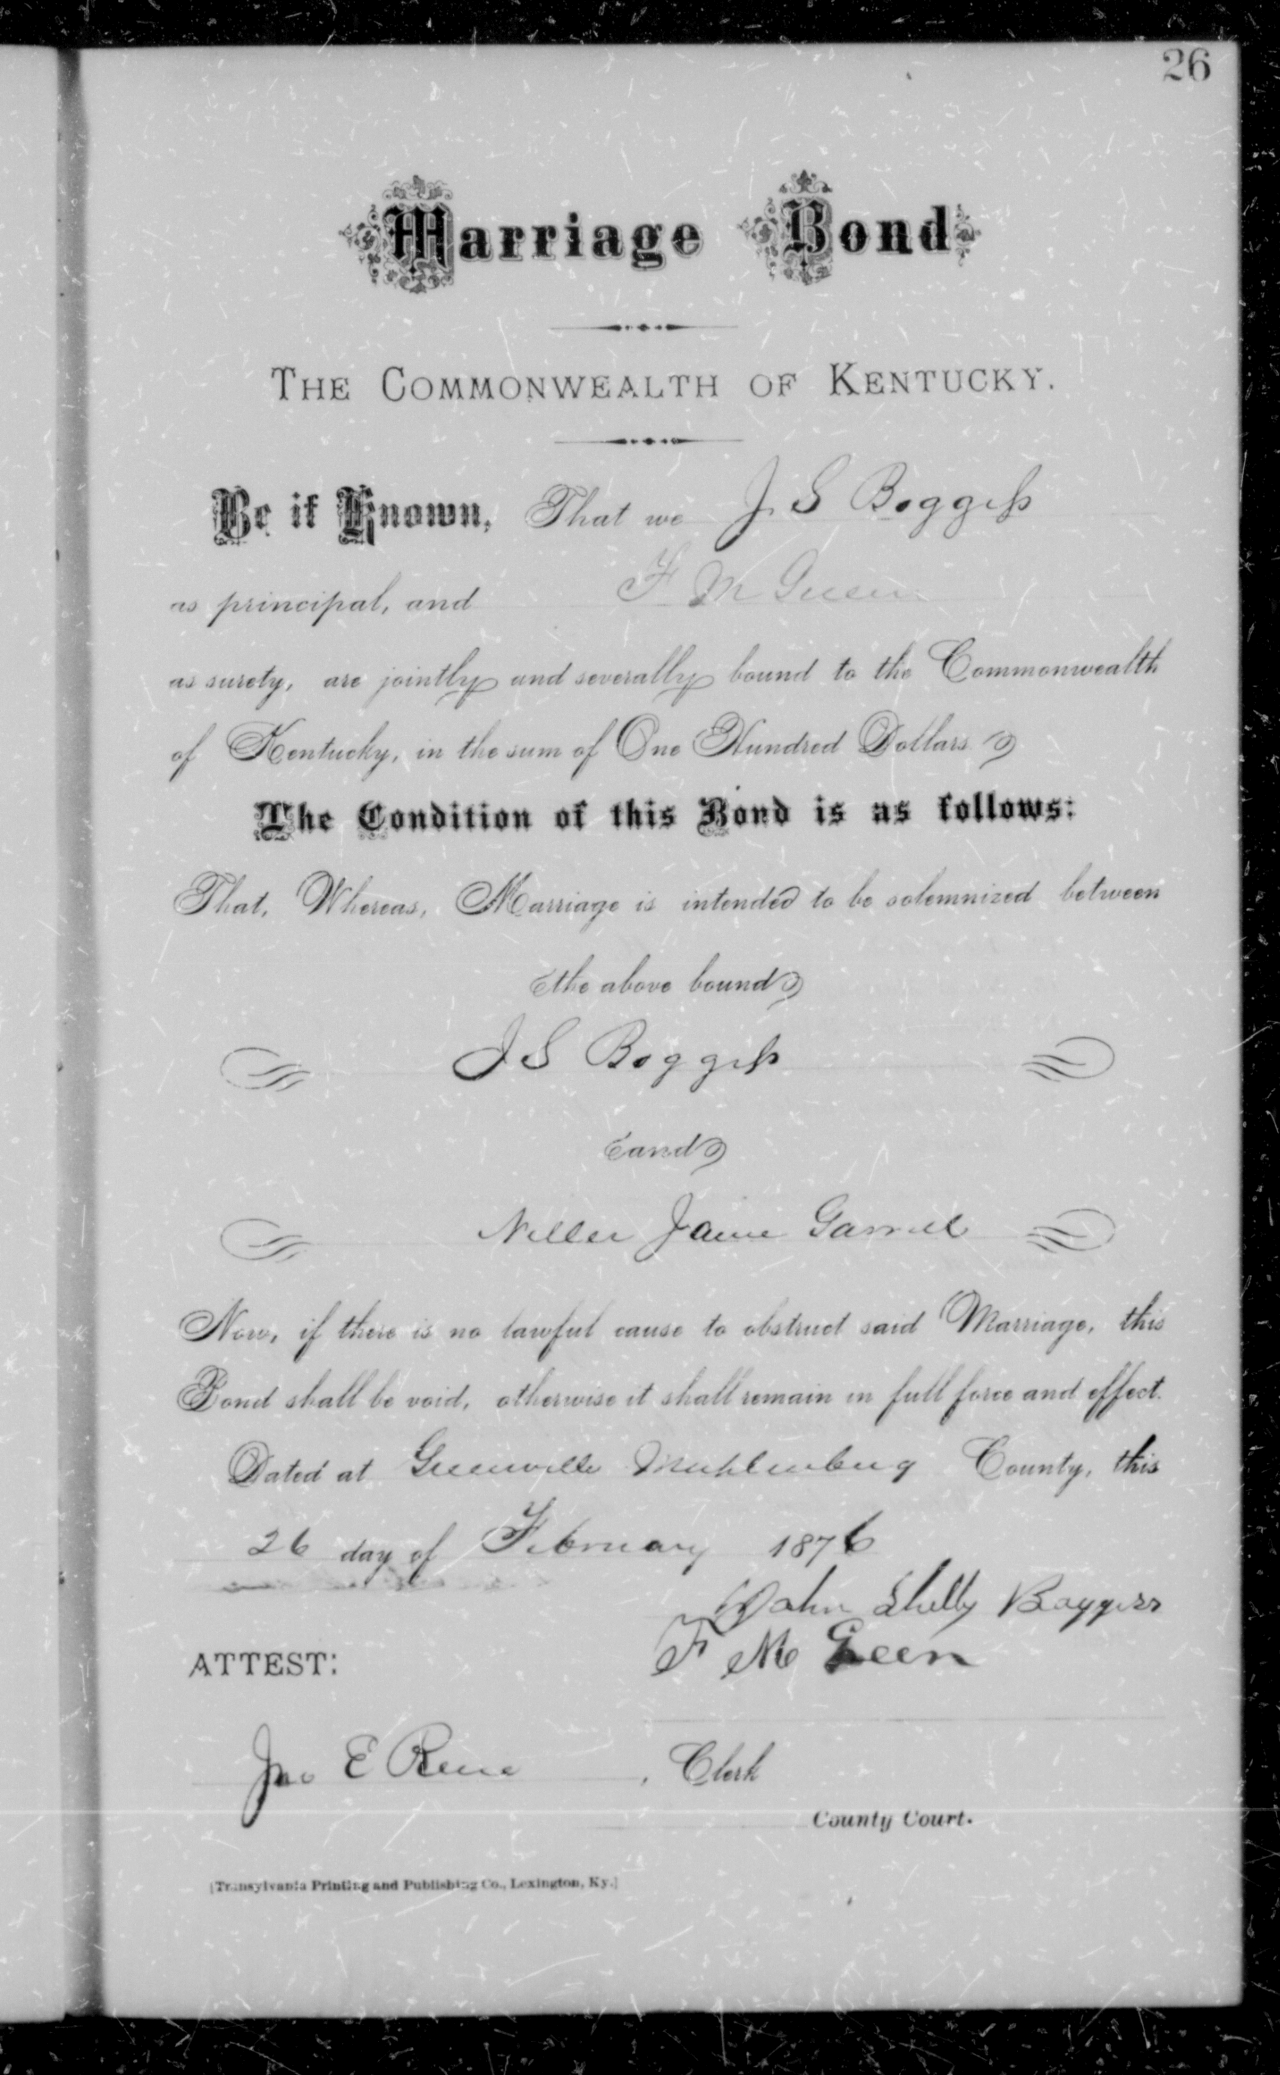 26
Marriage Bond
THE COMMONWEALTH OF KENTUCKY.
Be it Known, That we J. S Boggess
as principal, and F M Green
as surety, are jointly and severally bound to the Commonwealth
of Kentucky, in the sum of One Hundred Dollars.
The Condition of this Bond is as follows:
That, Whereas, Marriage is intended to be solemnized between
the above bound
J S Boggess
and
Jane
Now, if there is no lawful cause to obstruct said Marriage, this
Bond shall be void, otherwise it shall remain in full force and effect.
Dated at Greenville Muhlenburg County, this
26 day of February 1876
John Shelby Boggess
F M Green
ATTEST:
Jno E Reno, Clerk
County Court.
[Transylvania Printing and Publishing Co., Lexington, Ky.]